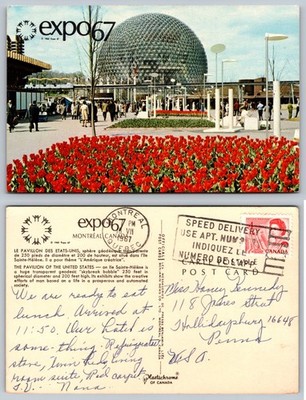 expo67
© 1963 Expo 67
expo67
MONTRÉAL, CANADA
© 1963 Expo 67
LE PAVILLON DES ETATS-UNIS, sphère géodésique
de 250 pieds de diamètre et 200 de hauteur, est situé dans l'île
Sainte-Hélène. Il a pour thème "L'Amérique créatrice".
THE PAVILION OF THE UNITED STATES — on Ile Sainte-Hélène is
a huge transparent geodesic "skybreak bubble" 250 feet in
spherical diameter and 200 feet high. Exhibits show the creative
efforts of man based on a life in a prosperous and automated
society.
We are ready to eat
lunch. Arrived at
11:50. Our hotel is
some-thing. Refrigerator,
stove, Tem, thing living
room suite, Red carpet,
T.V. - Nana
MONTREAL
PM
VII
1967
QUEBEC
SPEED DELIVERY
USE APT. NUMBER
INDIQUEZ LE
NUMÉRO DE L'APP.
POST CARD
Miss Nancy Kennedy
118 Jones Street
Hollidaysburg 16648
Penna
U.S.A.
Plastichrome
OF CANADA